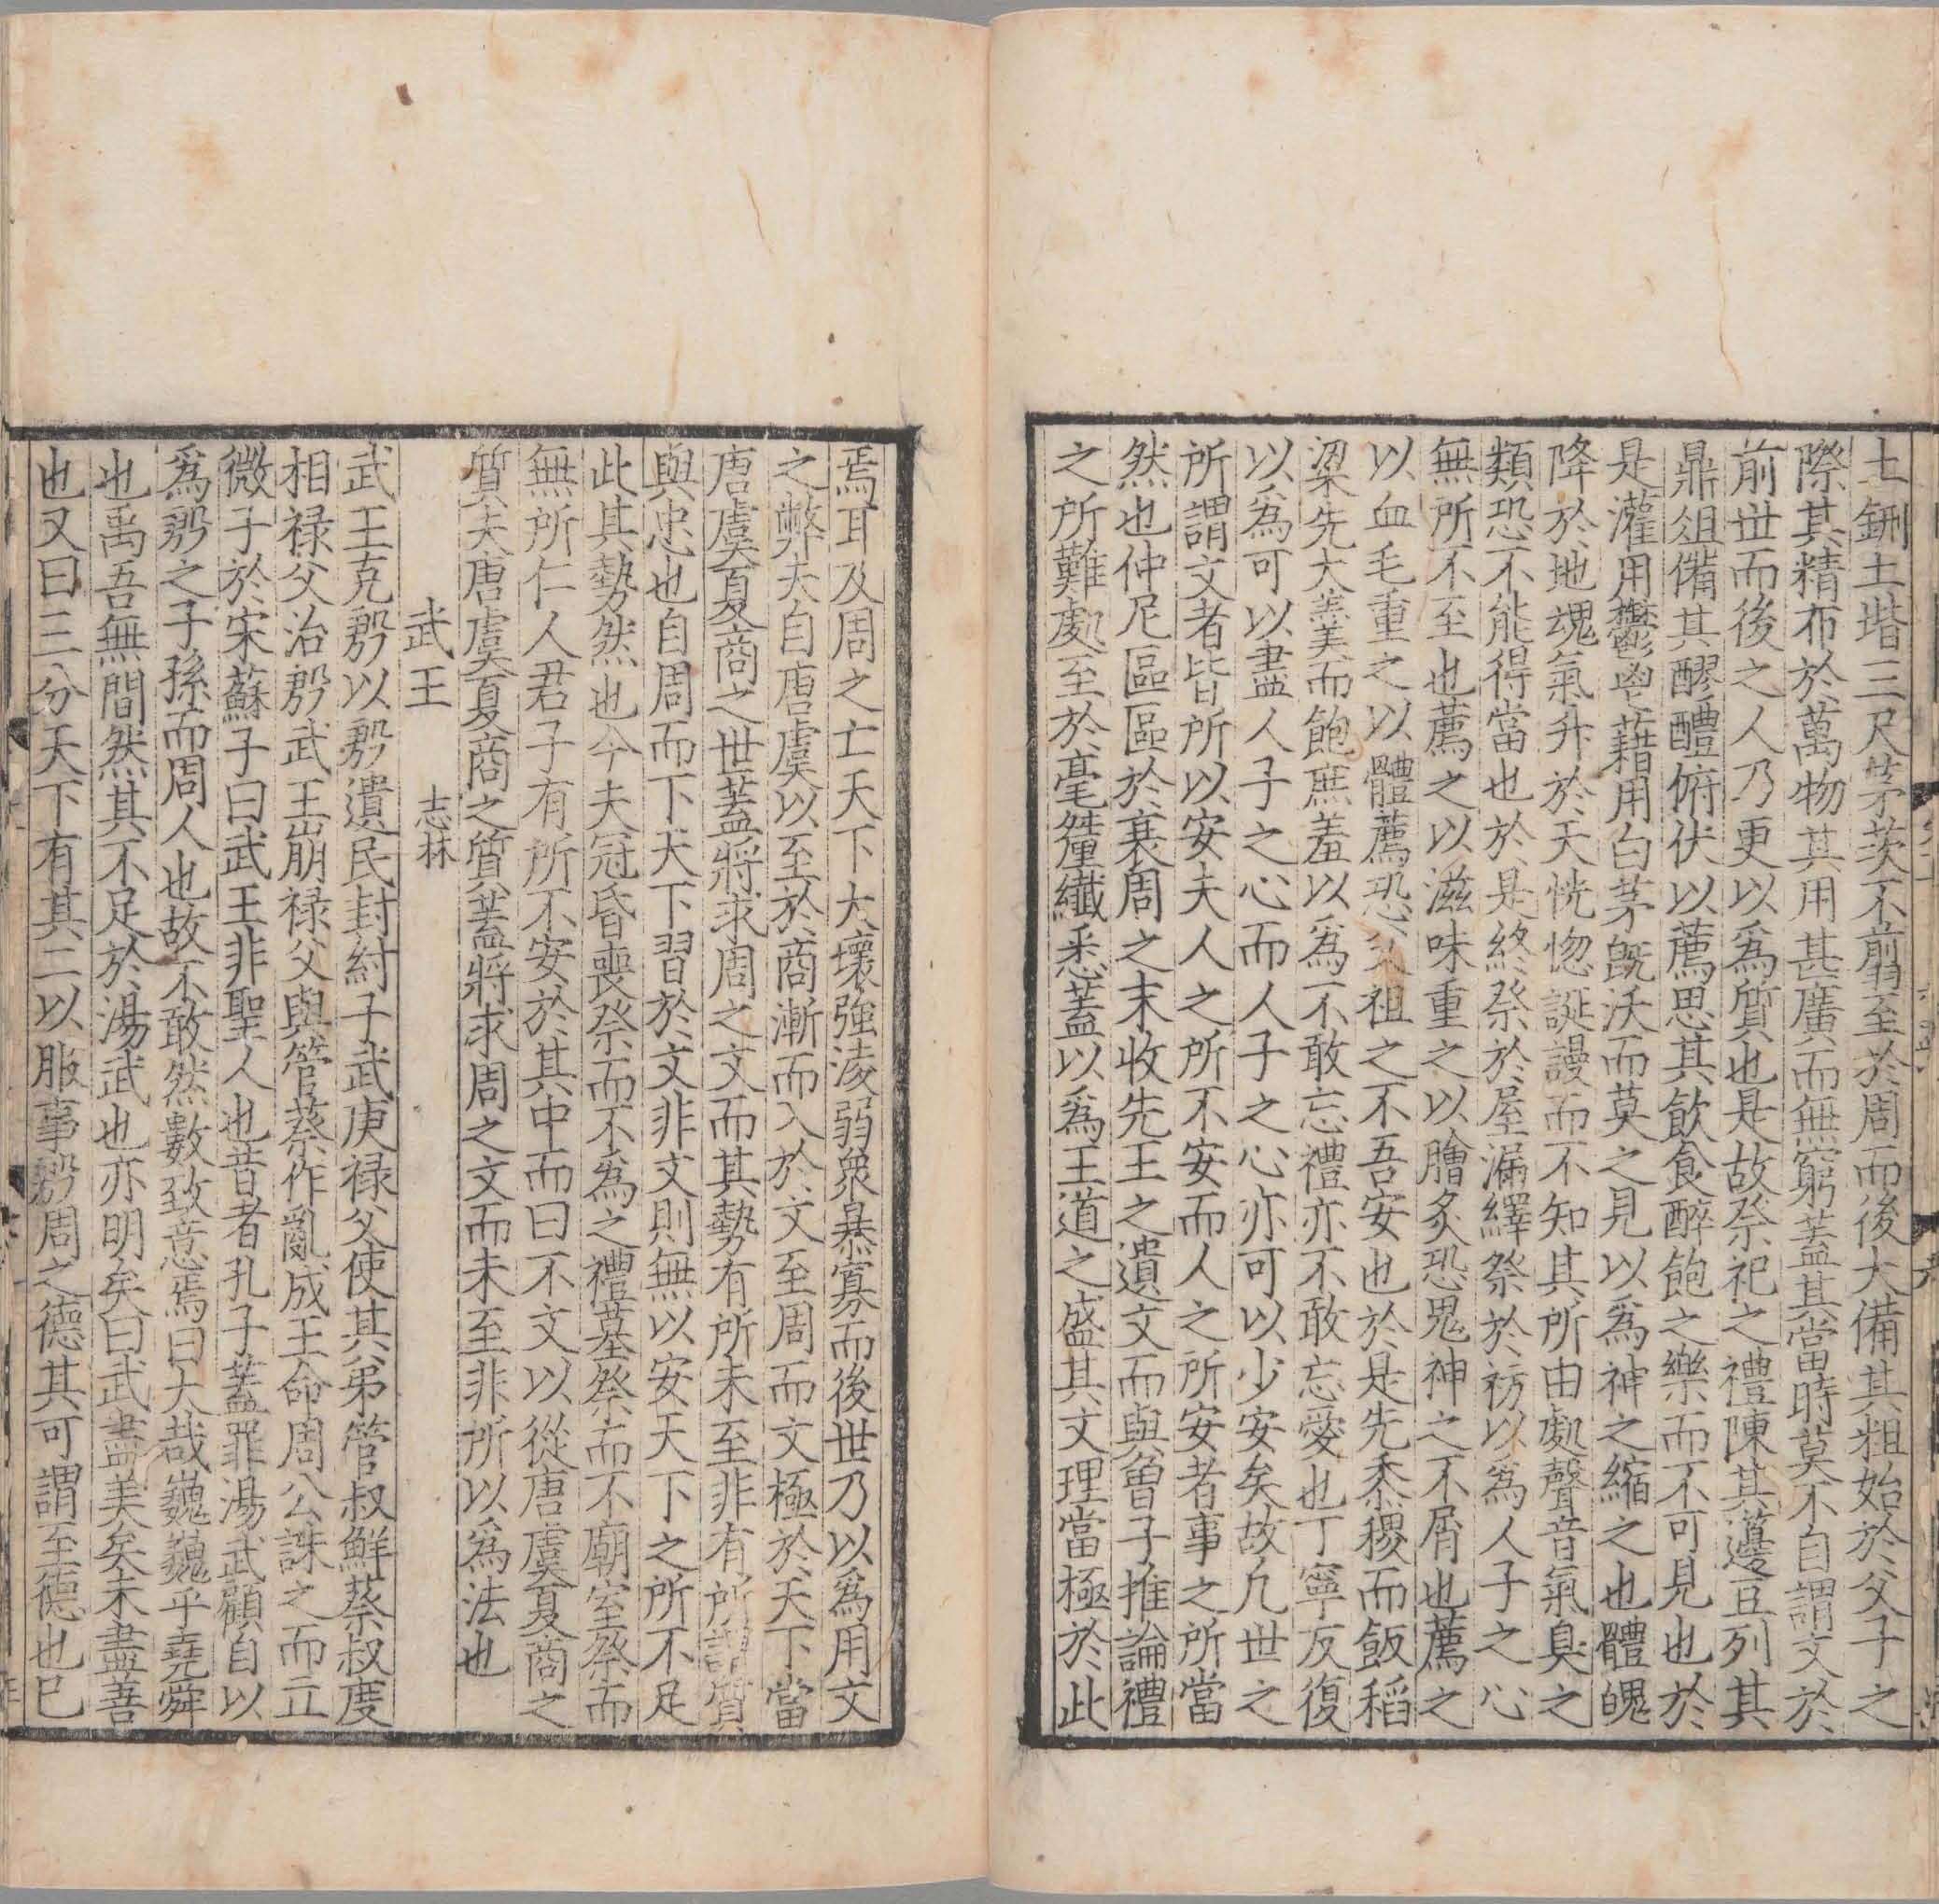 土鉶土堦三尺茅茨不翦至於周而後大備其粗始於父子之
際其精布於萬物其用甚廣而無窮蓋其當時莫不自謂文於
前世而後之人乃更以為質也是故祭祀之禮陳其籩豆列其
鼎俎備其醪醴俯伏以薦思其飲食醉飽之樂而不可見也於
是灌用鬱鬯藉用白茅既沃而莫之見以為神之縮之也體魄
降於地魂氣升於天恍惚誕謾而不知其所由處聲音氣臭之
類恐不能得當也於是終祭於屋漏繹祭於祊以為人子之心
無所不至也薦之以滋味重之以膾炙恐鬼神之不屑也薦之
以血毛重之以體薦恐父祖之不吾安也於是先黍稷而飯稻
粱先大羹而飽庶羞以為不敢忘禮亦不敢忘愛也丁寧反復
以為可以盡人子之心而人子之心亦可以少安矣故凡世之
所謂文者皆所以安夫人之所不安而人之所安者事之所當
然也仲尼區區於衰周之末收先王之遺文而與魯子推論禮
之所難處至於毫釐纖悉蓋以為王道之盛其文理當極於此
焉耳及周之亡天下大壞強凌弱衆暴寡而後世乃以為用文
之弊夫自唐虞以至於商漸而入於文至周而文極於天下當
唐虞夏商之世蓋將求周之文而其勢有所未至非有所謂質
與忠也自周而下天下習於文非文則無以安天下之所不足
此其勢然也今夫冠昏喪祭而不為之禮墓祭而不廟室祭而
無所仁人君子有所不安於其中而曰不文以從唐虞夏商之
質夫唐虞夏商之質蓋將求周之文而未至非所以為法也
武王　志林
武王克殷以殷遺民封紂子武庚祿父使其弟管叔鮮蔡叔度
相祿父治殷武王崩祿父與管蔡作亂成王命周公誅之而立
微子於宋蘇子曰武王非聖人也昔者孔子蓋罪湯武顧自以
為殷之子孫而周人也故不敢然數致意焉曰大哉巍巍乎堯舜
也禹吾無間然其不足於湯武也亦明矣曰武盡美矣未盡善
也又曰三分天下有其二以服事殷周之德其可謂至德也已